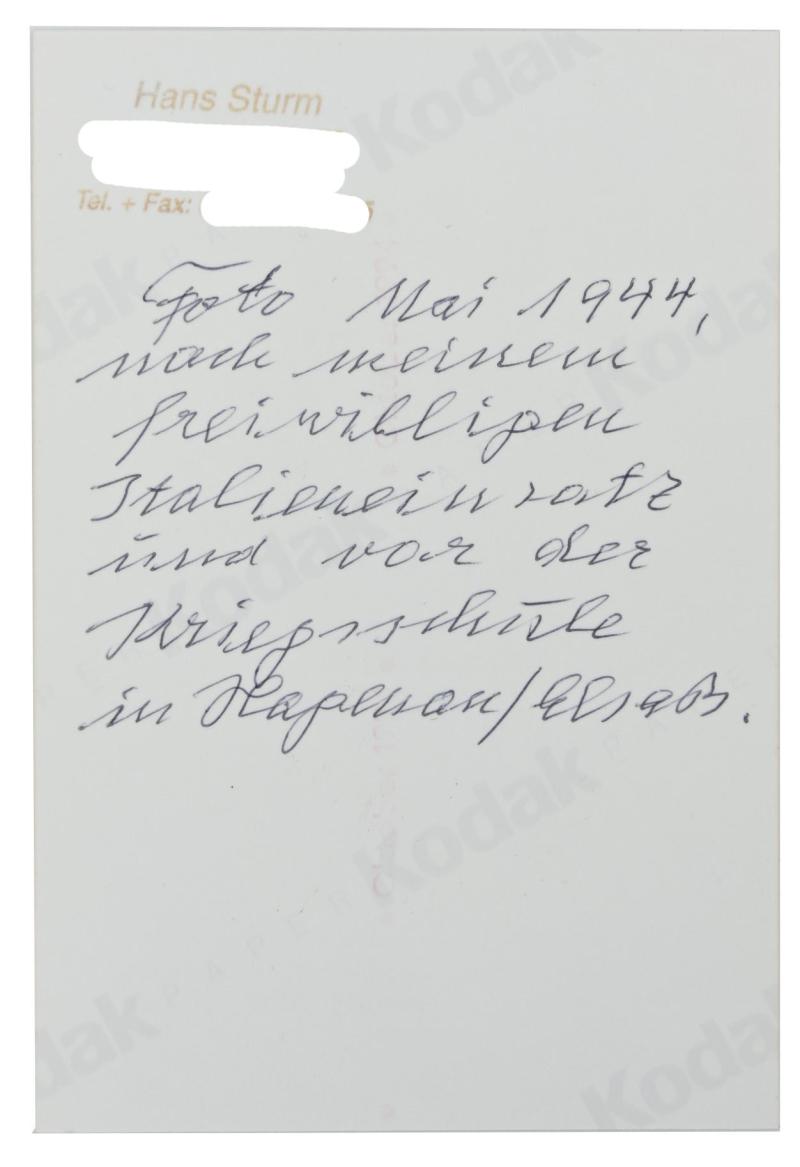 Hans Sturm
Tel. + Fax: 5
Foto Mai 1944,
nach meinem
freiwilligen
Italieneinsatz
und vor der
Kriegsschule
in Hagenau/Elsaß.
Kodak
Kodak
Kodak
Kodak
Kodak
PAPER
Kodak
Kodak